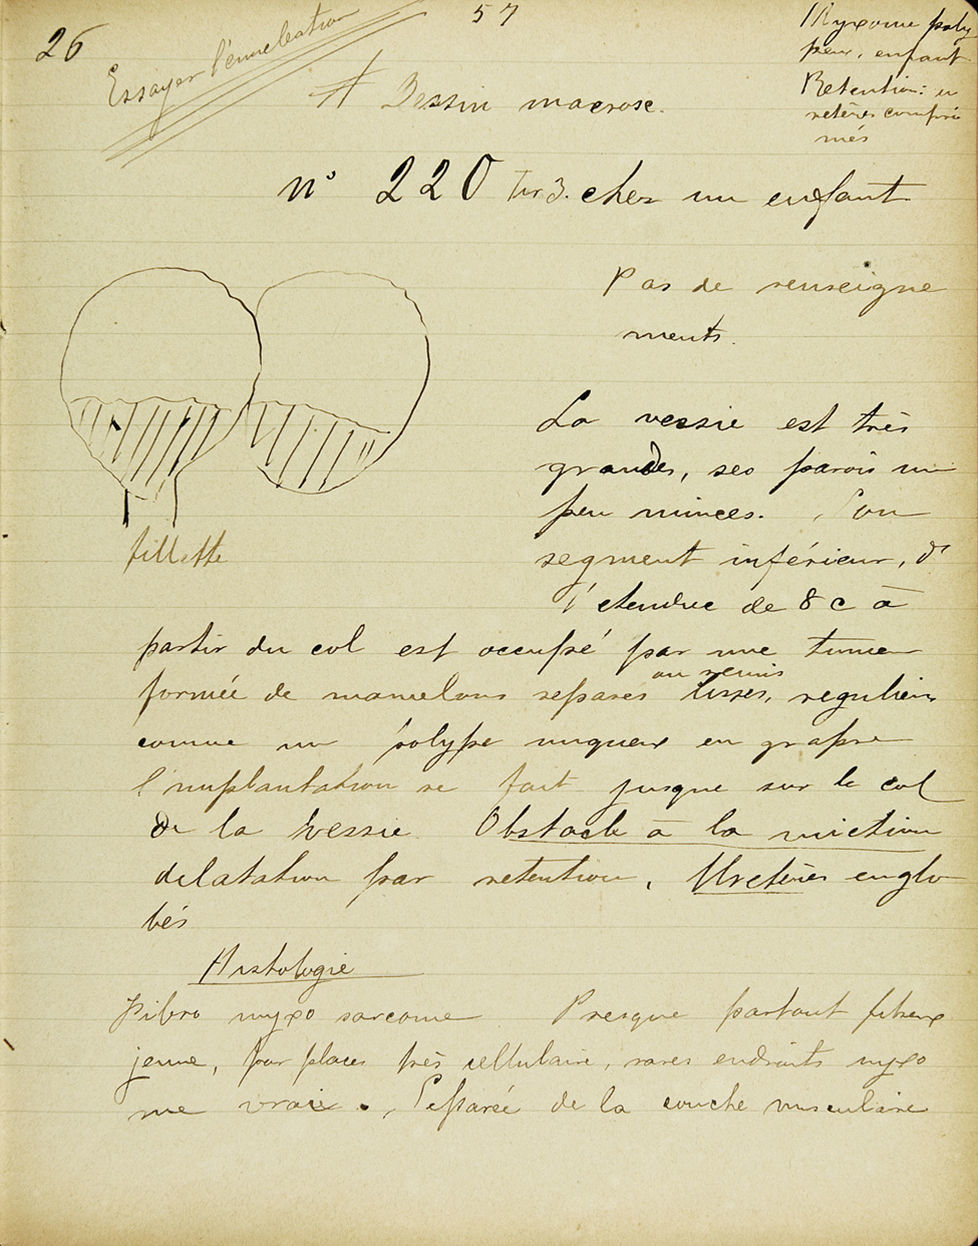 57
26
Essayer l'énucleation
Myxome poly
peux, enfant
Retention : u
retères compri
més
A Dessin macrosc.
n° 220 chez un enfant
Pas de renseigne
ments.
La vessie est très
grande, ses parois un
peu minces. Son
segment inférieur, ds
l'etendue de 8 c à
partir du col est occupé par une tumeur
formée de mamelons separés ou reunis lisses, reguliers
comme un polype muqueux en grappe
l'implantation se fait jusque sur le col
de la vessie. Obstacle à la miction
dilatation par retention, Uretères englo
bés
fillette
Histologie
Fibro myxo sarcome Presque partout fibreux
jeune, par places très cellulaire, rares endroits myxo
me vraie. Separée de la couche musculaire